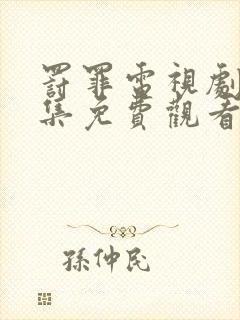 罸罪電視劇
集免費觀看
孫仲民